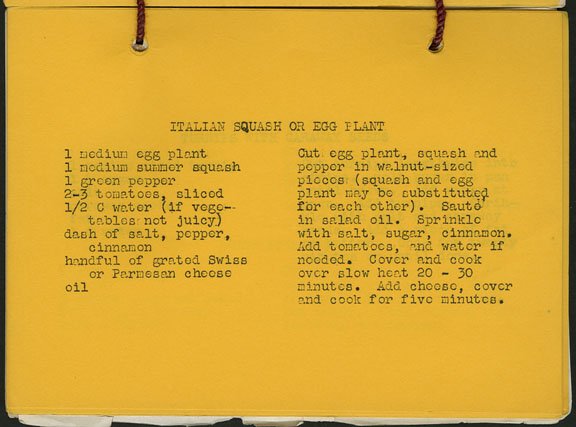 ITALIAN SQUASH OR EGG PLANT
1 medium egg plant
1 medium summer squash
1 green pepper
2-3 tomatoes, sliced
1/2 C water (if vege--
tables not juicy)
dash of salt, pepper,
cinnamon
handful of grated Swiss
or Parmesan cheese
oil
Cut egg plant, squash and
pepper in walnut-sized
pieces (squash and egg
plant may be substituted
for each other). Sauté
in salad oil. Sprinkle
with salt, sugar, cinnamon.
Add tomatoes, and water if
needed. Cover and cook
over slow heat 20 - 30
minutes. Add cheese, cover
and cook for five minutes.